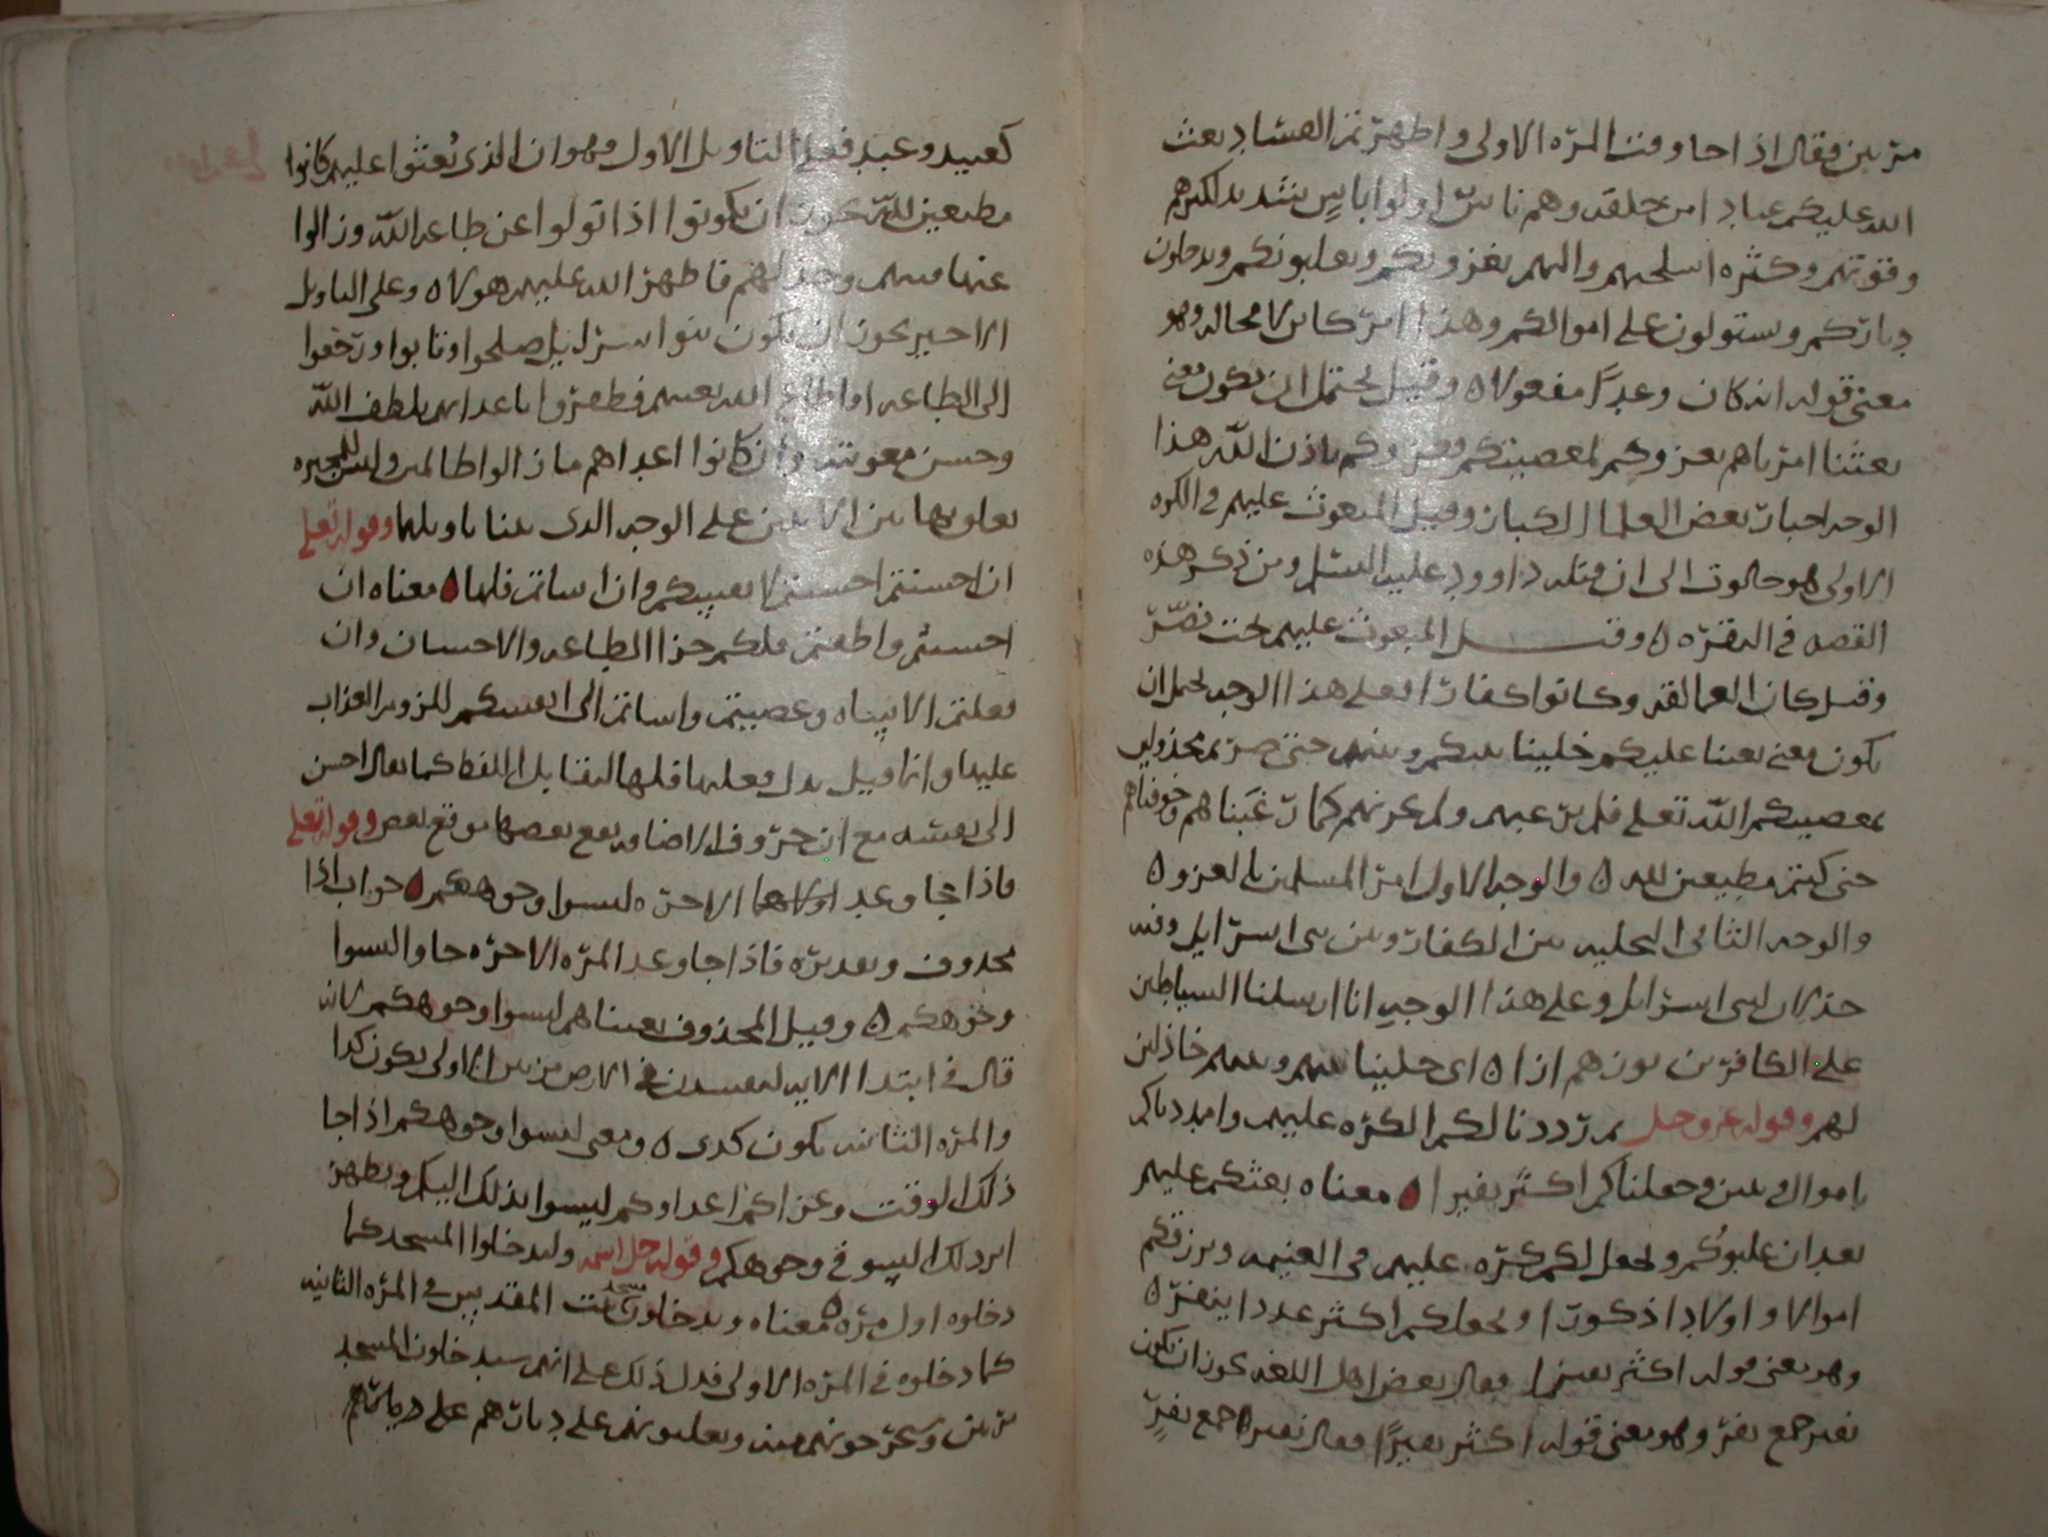 مرتين فقال اذا جا وقت المرّه الاولى واظهرتم الفساد بعث
الله عليكم عبادا من خلقه وهم ناس اولوا باسٍ شديد لكثرهم
وقوتهم وكثره اسلحتهم والهم يغزونكم ويغلبونكم ويدخلون
دياركم ويستولون على اموالكم وهذا امر كاين لا محاله وهو
معنى قوله انه كان وعدًا مفعولا ٥ وقيل يحتمل ان يكون معنى
بعثنا امرناهم بغزوكم لمعصيتكم فغزوكم باذن الله هذا
الوجه اختيار بعض العلما الكبار وقيل المبعوث عليهم في الكره
الاولى هو جالوت الى ان قتله داوود عليه السلم ومن ذكر هذه
القصه في البقره ٥ وقيل المبعوث عليهم بخت نصّر
وقيل كان العمالقه وكانوا كفارا فعلى هذا الوجه يحتمل ان
يكون معنى بعثنا عليكم خلينا بينكم وبينهم حتى صرتم مخذولين
بمعصيتكم الله تعلى فلم نرعبهم ولم نخوفهم كما رغّبناهم وخوفناهم
حتى كنتم مطيعين لله ٥ والوجه الاول امر المسلمين بالغزو ٥
والوجه الثاني التخليه بين الكفار وبين بني اسرايل وفيه
خذلان لبني اسرايل وعلى هذا الوجه انا ارسلنا الشياطين
على الكافرين توزهم ازا ٥ اي خلينا بينهم وبينهم خاذلين
لهم وقوله عز وجل ثم رددنا لكم الكرّه عليهم وامددناكم
باموال وبنين وجعلناكم اكثر نفيرا ٥ معناه بعثكم عليهم
بعد ان غلبوكم ويجعل لكم كرّه عليهم في الغنيمه ويرزقكم
اموالا واولادا ذكورا ويجعلكم اكثر عددا ينفر ٥
وهو معنى قوله اكثر نفيرا فقال بعض اهل اللغه يجوز ان يكون
نفير جمع نفر وهو معنى قوله اكثر نفيرًا فقال نفير جمع نفرٍ
كعبيد وعبد فعلى التاويل الاول وهو ان الذي بُعثوا عليهم كانوا
مطيعين لله يجوز ان يكونوا اذا تولوا عن طاعه الله وزالوا
عنها منهم وخذلهم فاظهر الله عليهم هولا ٥ وعلى التاويل
الاخير يجوز ان يكون بنوا اسرايل صلحوا وتابوا ورجعوا
الى الطاعه الله بعضهم فظفروا باعدايهم بلطف الله
وحسن معونته وان كانوا اعداهم ما زالوا ظالمين وليس للمجبره
تعلق بهاتين الايتين على الوجه الذي بينا تاويلها وقوله تعلى
ان احسنتم احسنتم لانفسكم وان اساتم فلها ٥ معناه ان
احسنتم واطعتم فلكم جزا الطاعه والاحسان وان
فعلتم الاساه وعصيتم واساتم الى انفسكم للزوم العذاب
عليها وانما قيل بدل فعليها فلها لتقابل اللفظ كما يقال احسن
الى نفسه مع ان حروف الاضافه يقع بعضها موقع بعض وقوله تعلى
فاذا جا وعد الاخره ليسوا وجوهكم ٥ جواب اذا
محذوف وتقديره فاذا جا وعد المرّه الاخره جاوا ليسوا
وجوهكم ٥ وقيل المحذوف بعثناهم ليسوا وجوهكم لانه
قال في ابتدا الايه لتفسدن في الارض مرتين الاولى يكون كذا
والمرّه الثانيه يكون كذى ٥ ومعنى ليسوا وجوهكم اذا جا
ذلك الوقت وغزاكم اعداوكم ليسوا بذلك اليكم ويظهر
اثر ذلك السو في وجوهكم وقوله جل اسمه وليدخلوا المسجد كما
دخلوه اول مرّه ٥ معناه ويدخلون مسجد بيت المقدس في المرّه الثانيه
كما دخلوه في المرّه الاولى فدل ذلك على انهم سيدخلون المسجد
مرتين ويخرجونهم منه ويغلبونهم على ديارهم على ديارهم